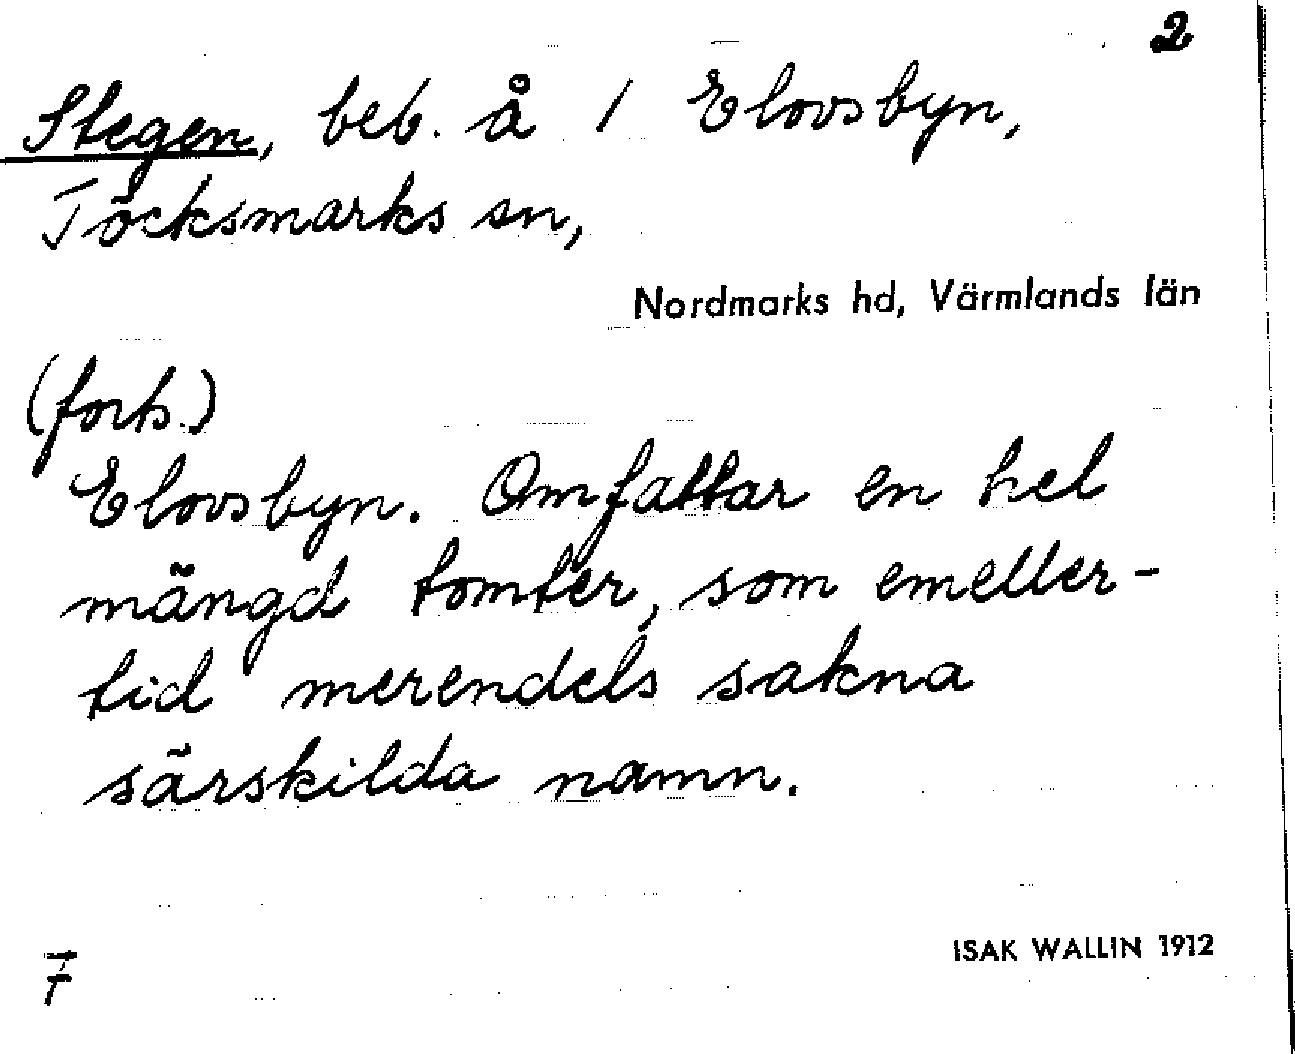 2
Stegen, beb. å 1 Elovsbyn,
Töcksmarks sn,
Nordmarks hd, Värmlands län
(forts.)
Elovsbyn. Omfattar en hel
mängd tomter, som emeller-
tid merendels sakna
särskilda namn.
ISAK WALLIN 1912
F